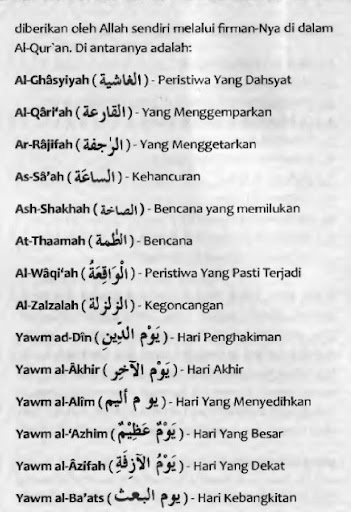 diberikan oleh Allah sendiri melalui firman-Nya di dalam
Al-Qur`an. Di antaranya adalah:
Al-Ghâsyiyah (الغاشية) - Peristiwa Yang Dahsyat
Al-Qâri‘ah (القارعة) - Yang Menggemparkan
Ar-Râjifah (الرٰجفة) - Yang Menggetarkan
As-Sâ’ah (الساعَة) - Kehancuran
Ash-Shakhah (الصاخة) - Bencana yang memilukan
At-Thaamah (الطٰمة) - Bencana
Al-Wâqi‘ah (الْوَاقِعَةُ) - Peristiwa Yang Pasti Terjadi
Al-Zalzalah (الزلزلة) - Kegoncangan
Yawm ad-Dîn (يَوْمُ الدِّينِ) - Hari Penghakiman
Yawm al-Âkhir (يَوْمُ الآخِرِ) - Hari Akhir
Yawm al-Alîm (يو م أليم) - Hari Yang Menyedihkan
Yawm al-‘Azhim (يَوْمٌ عَظِيْمٌ) - Hari Yang Besar
Yawm al-Âzifah (يَوْمُ الآزِفَةِ) - Hari Yang Dekat
Yawm al-Ba’ats (يوم البعث) - Hari Kebangkitan